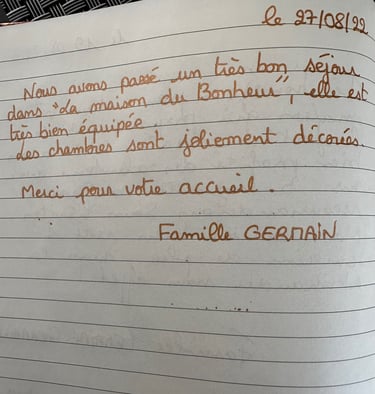 le 27/08/22
Nous avons passé un très bon séjour
dans "La maison du Bonheur", elle est
très bien équipée.
Les chambres sont joliement décorées.
Merci pour votre accueil.
Famille GERMAIN